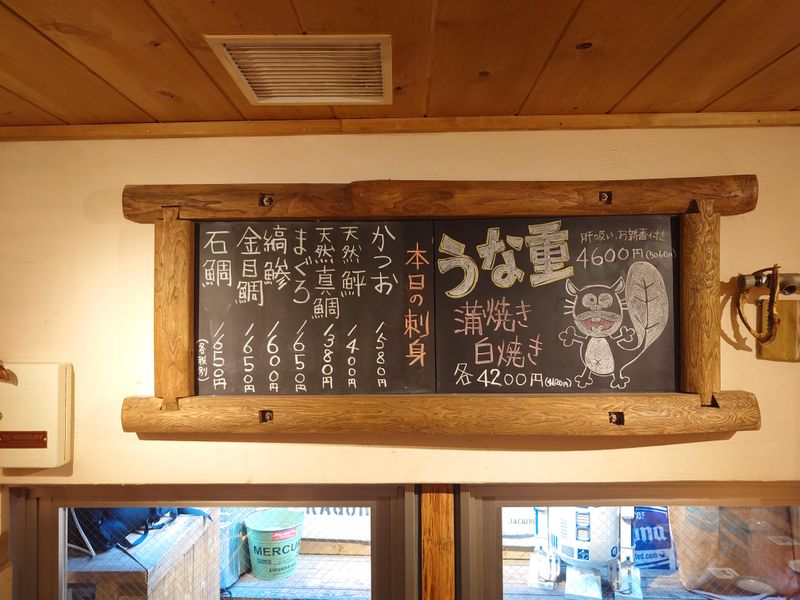 うな重
肝吸い・お新香付き
4600円(5060円)
蒲焼き
白焼き
各4200円(4620円)
本日の刺身
かつお 1580円
天然 鮃 1400円
天然真鯛 1380円
まぐろ 1650円
縞鯵 1600円
金目鯛 1650円
石鯛 1650円
(各税別)
MERCURY
MERCUR
Corona